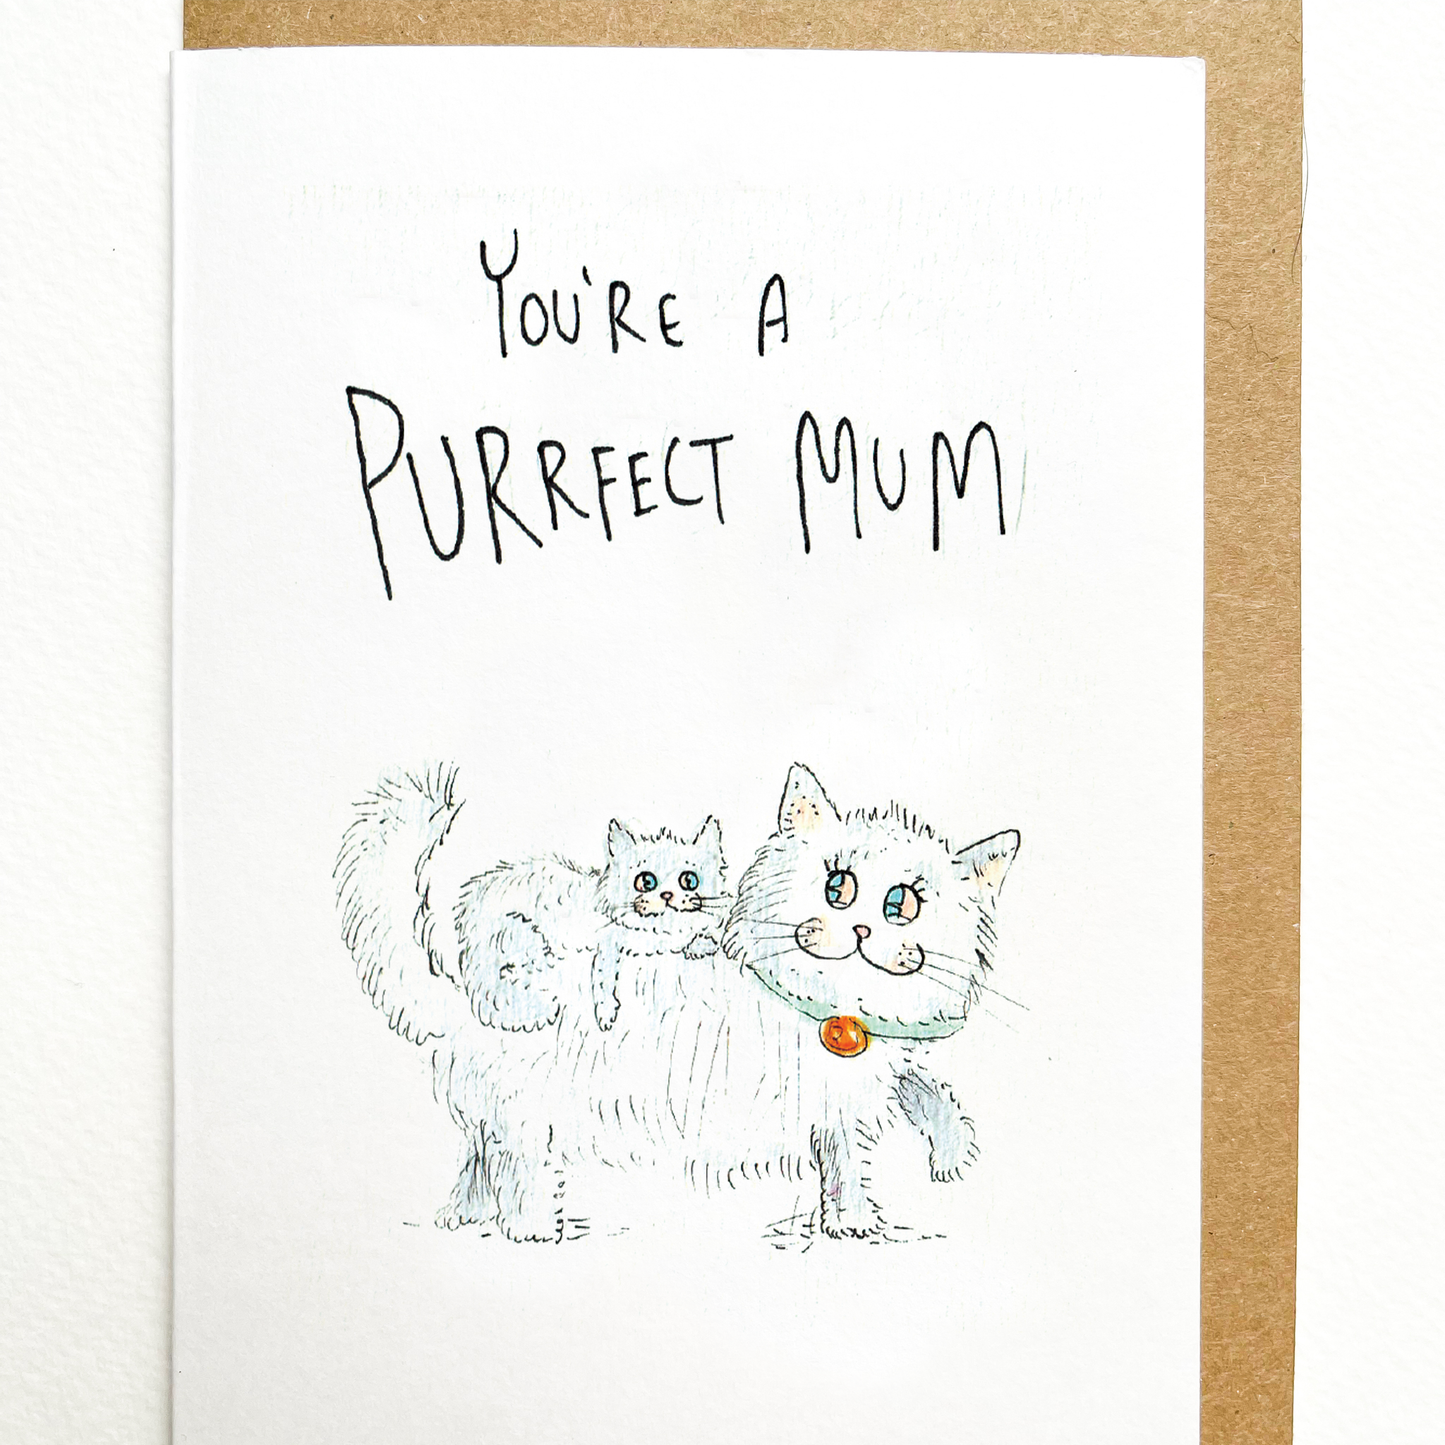 You're A
PURRFECT MUM